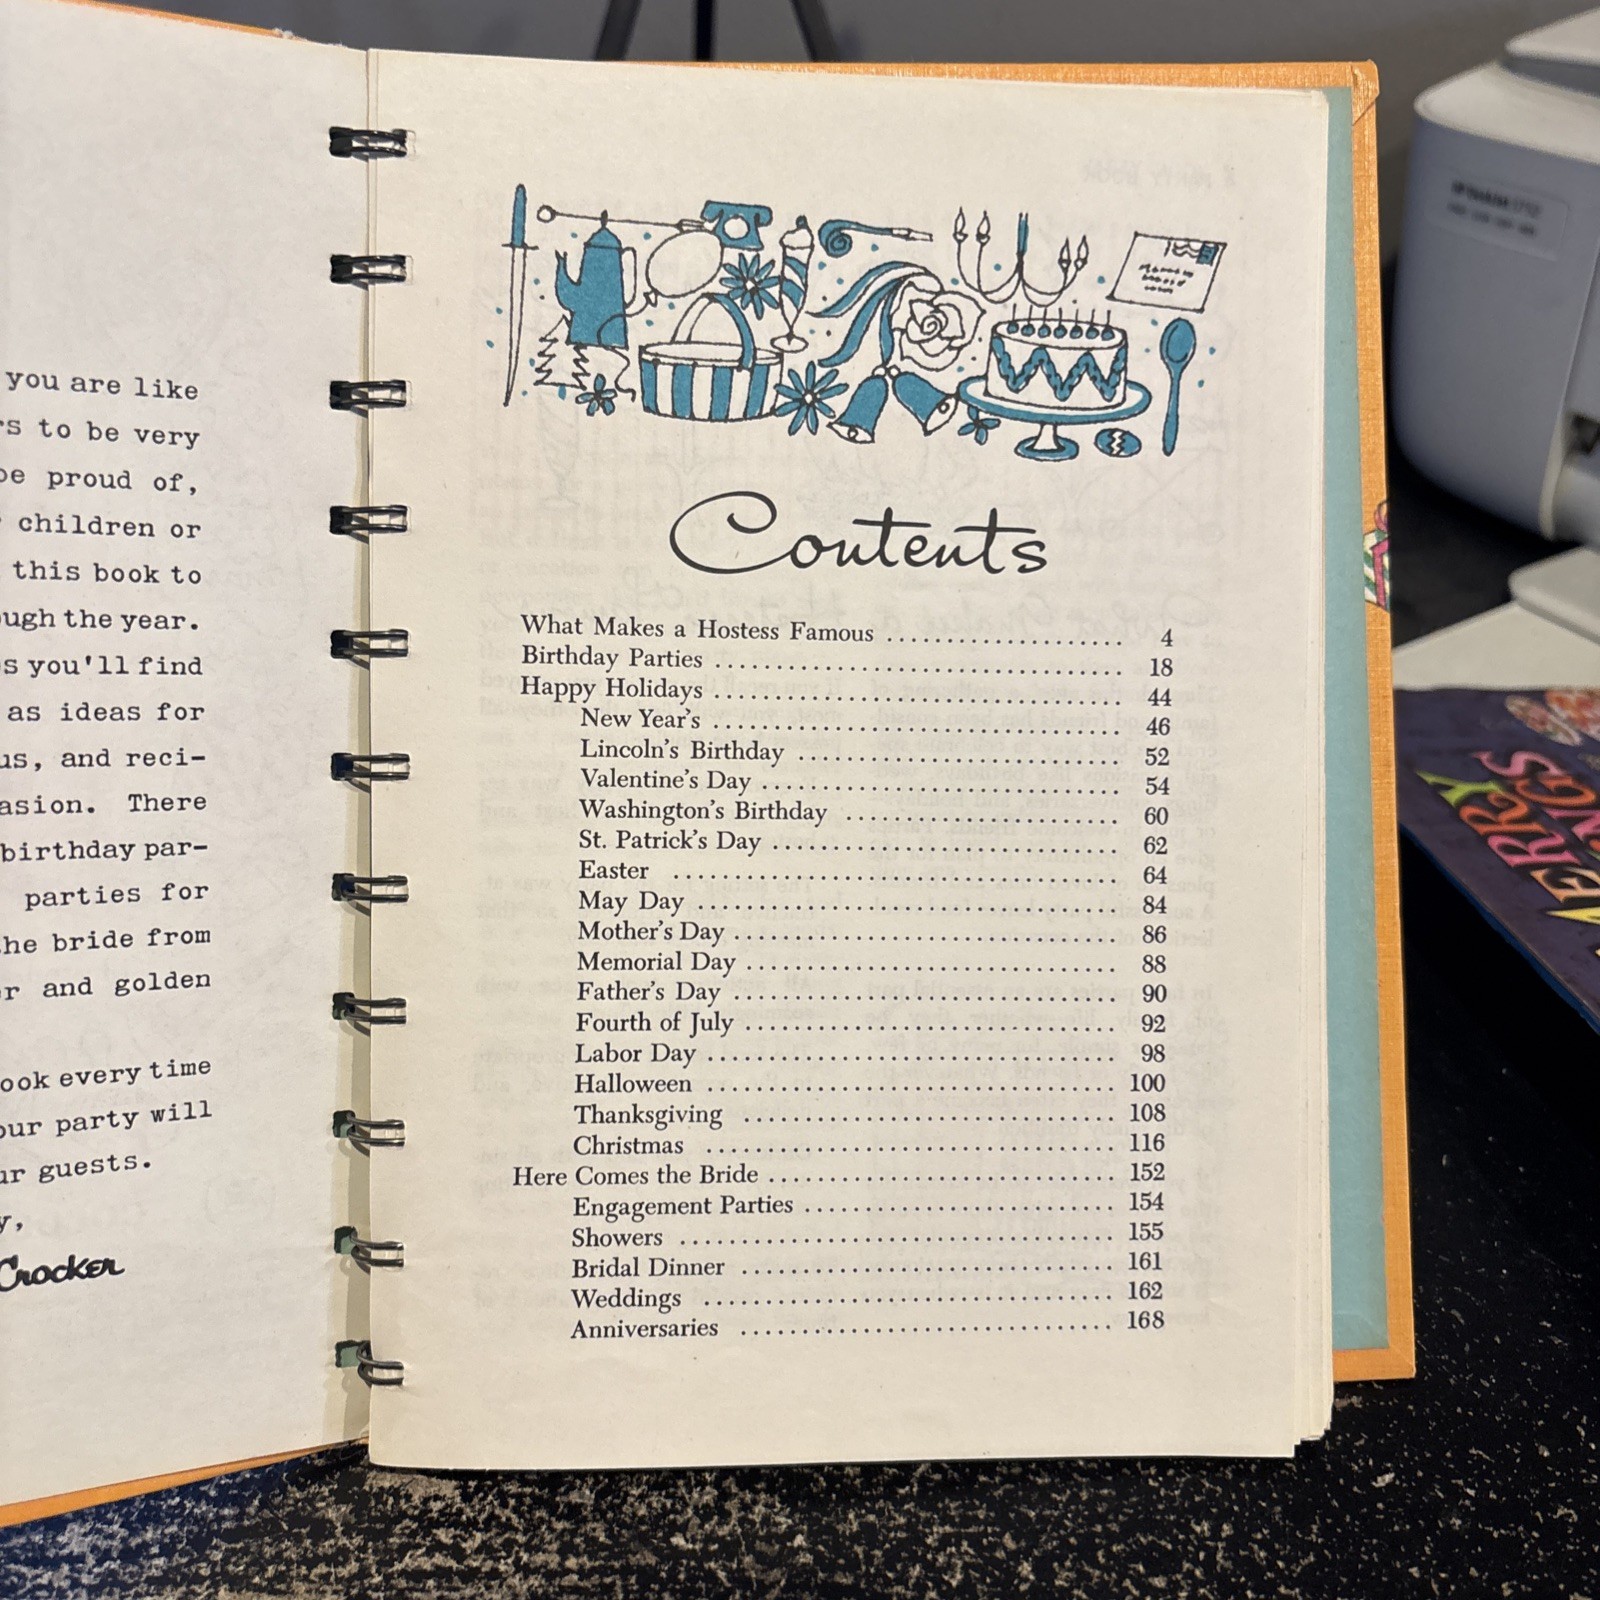 you are like
rs to be very
be proud of,
children or
this book to
ough the year.
s you'll find
as ideas for
us, and reci-
asion. There
birthday par-
parties for
the bride from
r and golden
ook every time
our party will
ur guests.
y,
Crocker
Contents
What Makes a Hostess Famous ........................ 4
Birthday Parties ........................ 18
Happy Holidays ........................ 44
New Year's ........................ 46
Lincoln's Birthday ........................ 52
Valentine's Day ........................ 54
Washington's Birthday ........................ 60
St. Patrick's Day ........................ 62
Easter ........................ 64
May Day ........................ 84
Mother's Day ........................ 86
Memorial Day ........................ 88
Father's Day ........................ 90
Fourth of July ........................ 92
Labor Day ........................ 98
Halloween ........................ 100
Thanksgiving ........................ 108
Christmas ........................ 116
Here Comes the Bride ........................ 152
Engagement Parties ........................ 154
Showers ........................ 155
Bridal Dinner ........................ 161
Weddings ........................ 162
Anniversaries ........................ 168